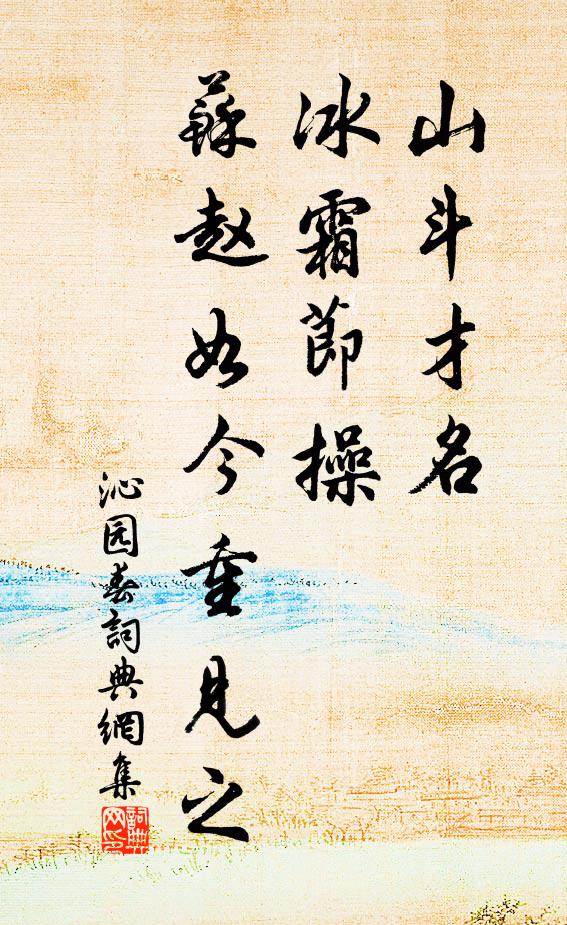 山斗才名
冰霜節操
蘇赵如今重見之
沁园春詞典網集
詞典网印